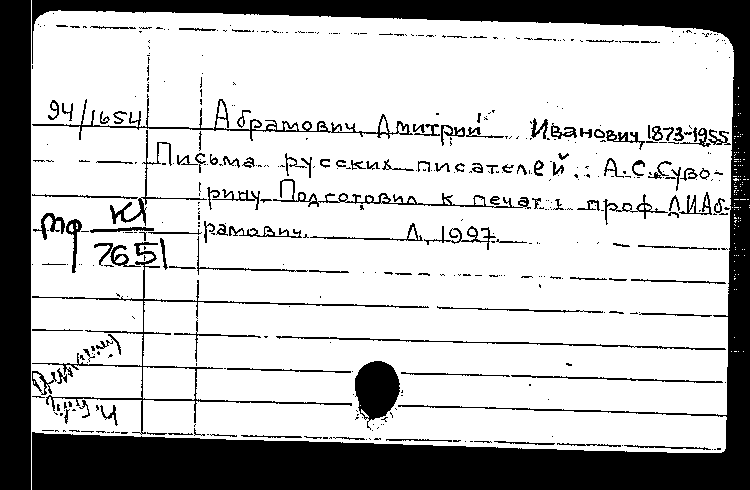 94/1654 Абрамович, Дмитрий Иванович, 1873-1955
Письма русских писателей.: А.С.Суво-
рину. Подготовил к печати проф. Д.И.Аб-
рамович. Л., 1927.
Мф К1
7651